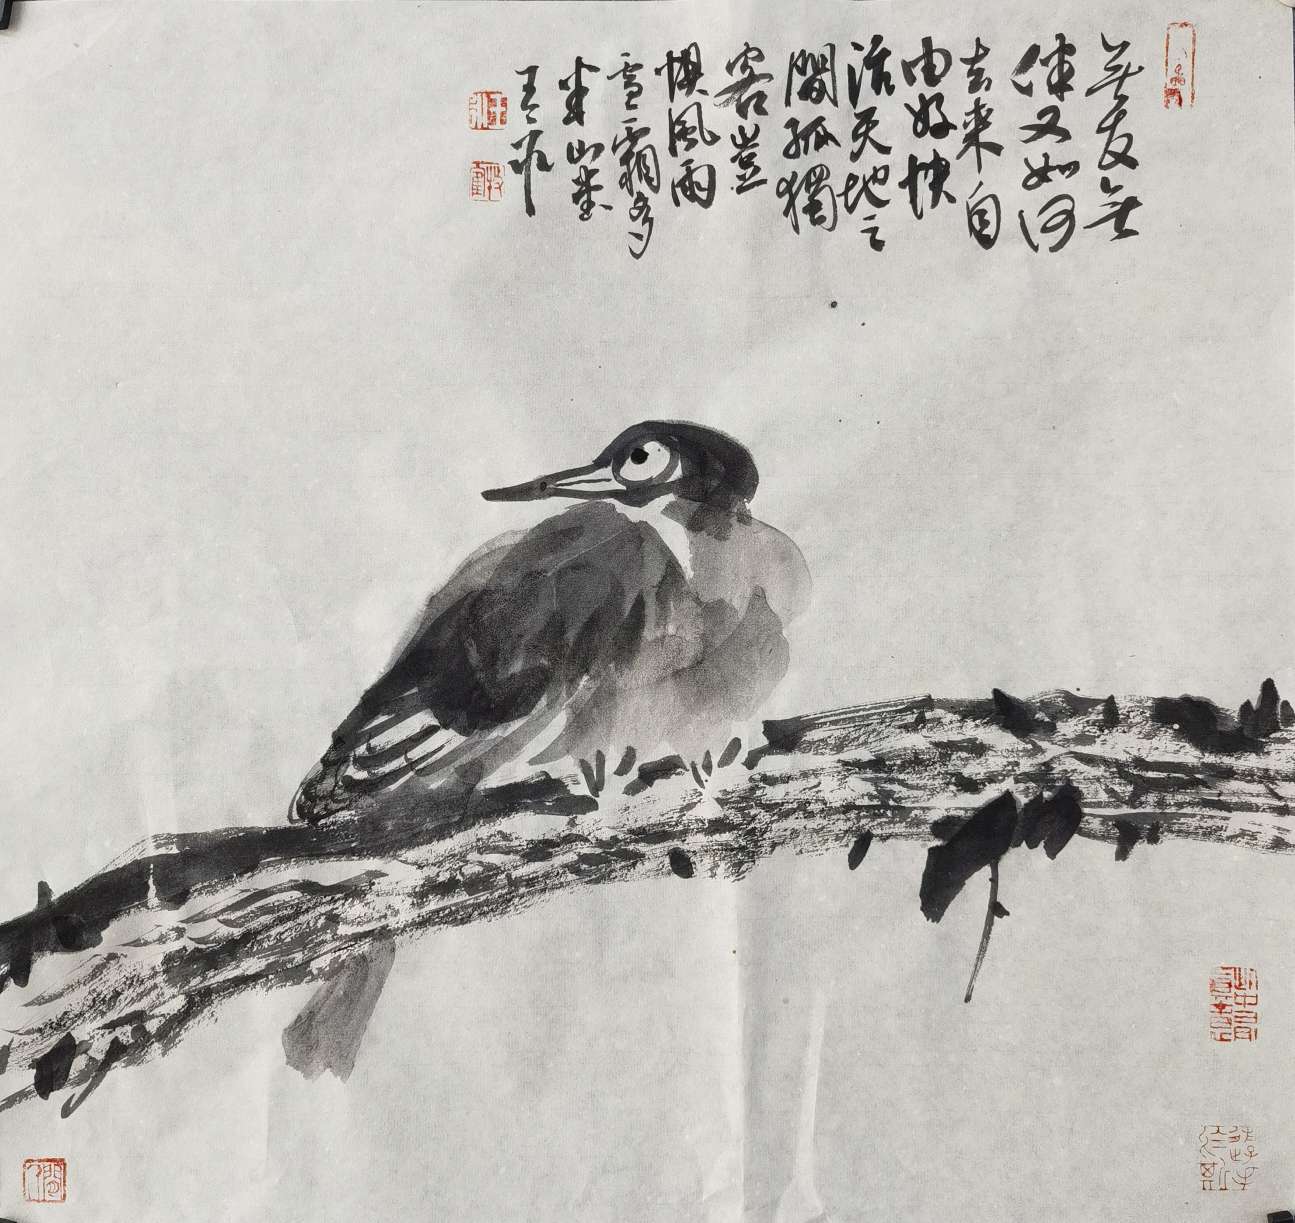 無友無
伴又如何
去来自
由好快
活天地之
間孤獨
客豈
懼風雨
雪霜多
半山堂